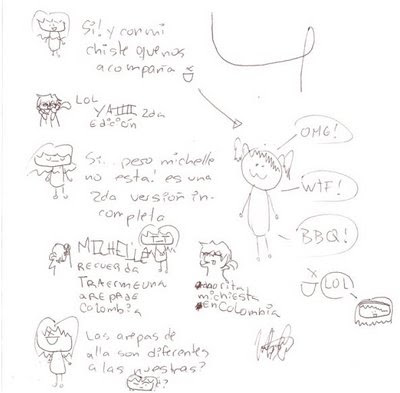 Si! y con mi
chiste que nos
acompaña
LOL
YAIIII 2da
Edición
Si... pero michelle
no esta! es una
2da versión in-
completa
MICHELLE
RECUERDA
TRAERME UNA
AREPA DE
COLOMBIA
ahorita
michi esta
EN COLOMBIA
Las arepas de
alla son diferentes
a las nuestras?
?
OMG!
WTF!
BBQ!
LOL